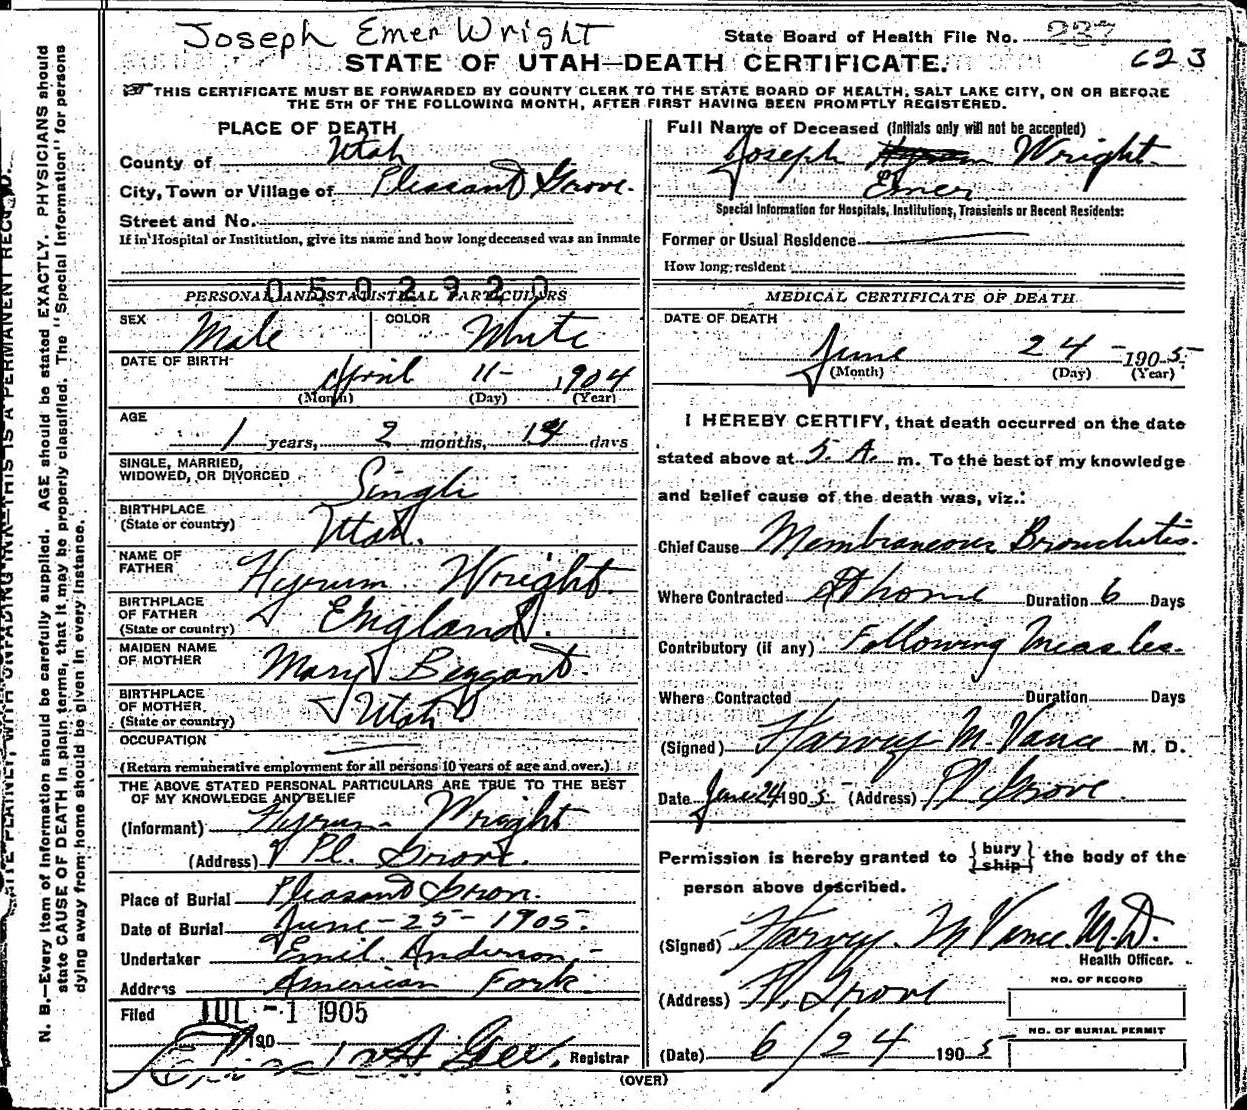 Joseph Emer Wright
State Board of Health File No. 237
623
STATE OF UTAH—DEATH CERTIFICATE.
THIS CERTIFICATE MUST BE FORWARDED BY COUNTY CLERK TO THE STATE BOARD OF HEALTH, SALT LAKE CITY, ON OR BEFORE
THE 5TH OF THE FOLLOWING MONTH, AFTER FIRST HAVING BEEN PROMPTLY REGISTERED.
PLACE OF DEATH
County of Utah
City, Town or Village of Pleasant Grove.
Street and No.
If in Hospital or Institution, give its name and how long deceased was an inmate
0502920
PERSONAL AND STATISTICAL PARTICULARS
SEX Male COLOR White
DATE OF BIRTH April 11- 1904
(Month) (Day) (Year)
AGE
1 years, 2 months, 14 days
SINGLE, MARRIED,
WIDOWED, OR DIVORCED Single
BIRTHPLACE
(State or country) Utah.
NAME OF
FATHER Hyrum Wright.
BIRTHPLACE
OF FATHER
(State or country) England.
MAIDEN NAME
OF MOTHER Mary Beggant.
BIRTHPLACE
OF MOTHER
(State or country) Utah
OCCUPATION
(Return remunerative employment for all persons 10 years of age and over.)
THE ABOVE STATED PERSONAL PARTICULARS ARE TRUE TO THE BEST
OF MY KNOWLEDGE AND BELIEF
(Informant) Hyrum Wright
(Address) Pl. Grove.
Place of Burial Pleasant Grove.
Date of Burial June-25-1905.
Undertaker Emil. Anderson,
Address American Fork
Filed JUL -1 1905
190
Gee, Registrar
Full Name of Deceased (Initials only will not be accepted)
Joseph Hyrum Wright.
Emer
Special Information for Hospitals, Institutions, Transients or Recent Residents:
Former or Usual Residence
How long resident
MEDICAL CERTIFICATE OF DEATH
DATE OF DEATH
June 24-1905.
(Month) (Day) (Year)
I HEREBY CERTIFY, that death occurred on the date
stated above at 5. A. m. To the best of my knowledge
and belief cause of the death was, viz.:
Chief Cause Membraneous Bronchitis.
Where Contracted At home Duration 6 Days
Contributory (if any) Following Measles.
Where Contracted Duration Days
(Signed) Harvey M. Vance M. D.
Date June 24 1905 (Address) Pl Grove.
Permission is hereby granted to {bury ship} the body of the
person above described.
(Signed) Harvey. M Vance M.D.
Health Officer.
(Address) Pl. Grove
NO. OF RECORD
NO. OF BURIAL PERMIT
(Date) 6/24 1905
(OVER)
N. B.—Every item of information should be carefully supplied. AGE should be stated EXACTLY. PHYSICIANS should
state CAUSE OF DEATH in plain terms, that it may be properly classified. The "Special Information" for persons
dying away from home should be given in every instance.